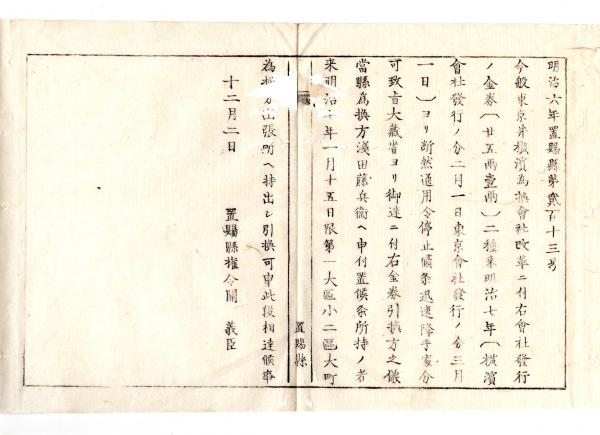 明治六年置賜縣第貳百十三号
今般東京并横濱為換會社改革ニ付右會社發行
ノ金券(廿五兩壹兩)二種来明治七年(横濱
會社發行ノ分二月一日東京會社發行ノ分三月
一日)ヨリ断然通用令停止候条迅速
可致旨大藏省ヨリ御達ニ付右金券引換方之儀
當縣爲換方淺田藤兵衛ヘ申付置候条所持ノ者
来明治七年一月十五日限第一大區小二區大町
置賜縣
為換方出張所ヘ持出シ引換可申此段相達候事
十二月二日
置賜縣權令關 義臣